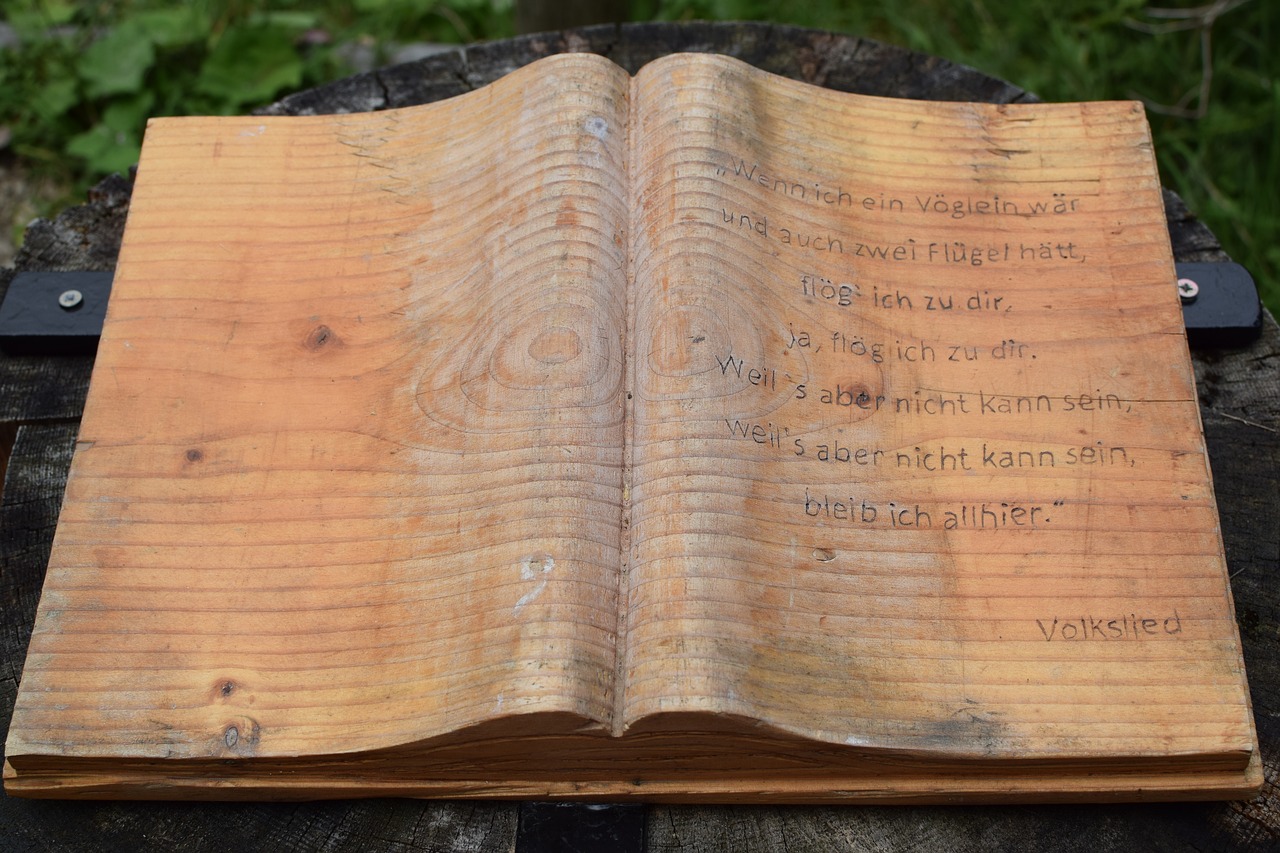 „Wenn ich ein Vöglein wär
und auch zwei Flügel hätt,
flög ich zu dir,
ja, flög ich zu dir.
Weil`s aber nicht kann sein,
weil's aber nicht kann sein,
bleib ich allhier.“
Volkslied